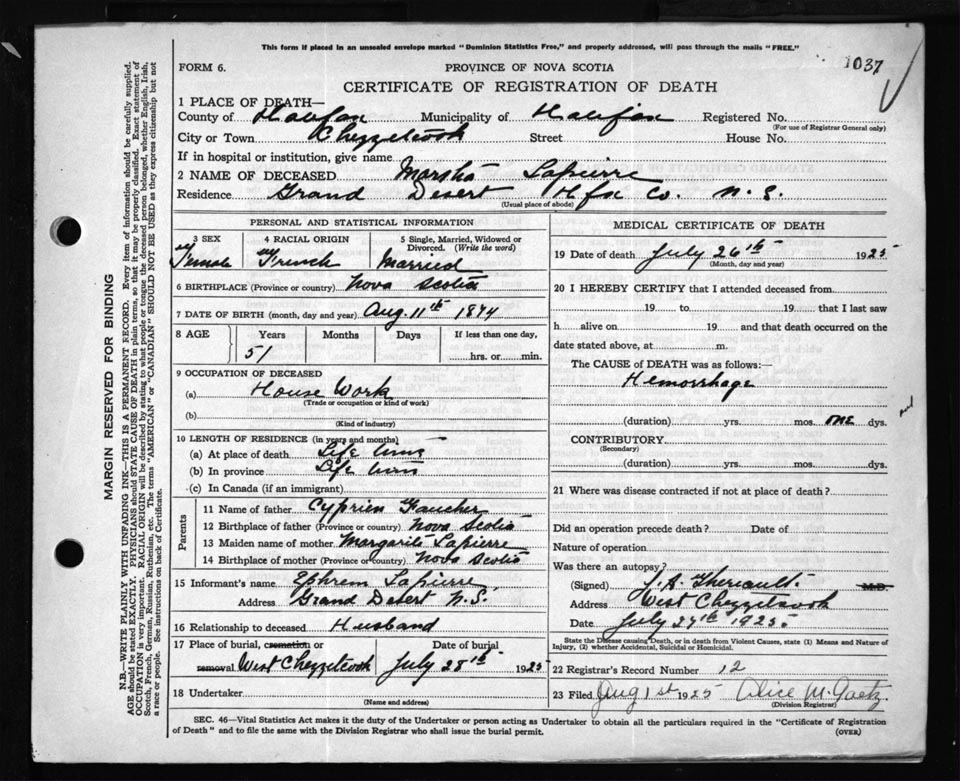 This form if placed in an unsealed envelope marked "Dominion Statistics Free," and properly addressed, will pass through the mails "FREE."
1037
FORM 6.
PROVINCE OF NOVA SCOTIA
CERTIFICATE OF REGISTRATION OF DEATH
1 PLACE OF DEATH—
County of Halifax Municipality of Halifax Registered No.
(For use of Registrar General only)
City or Town Chezzetcook Street House No.
If in hospital or institution, give name
2 NAME OF DECEASED Marsha Lapierre
Residence Grand Desert Hfx Co. N.S.
(Usual place of abode)
PERSONAL AND STATISTICAL INFORMATION
3 SEX 4 RACIAL ORIGIN 5 Single, Married, Widowed or Divorced. (Write the word)
Female French Married
6 BIRTHPLACE (Province or country) Nova Scotia
7 DATE OF BIRTH (month, day and year) Aug. 11th 1874
8 AGE Years Months Days If less than one day,
51 hrs. or min.
9 OCCUPATION OF DECEASED
(a) House Work
(Trade or occupation or kind of work)
(b)
(Kind of industry)
10 LENGTH OF RESIDENCE (in years and months)
(a) At place of death Life time
(b) In province Life time
(c) In Canada (if an immigrant)
Parents
11 Name of father Cyprien Faucher
12 Birthplace of father (Province or country) Nova Scotia
13 Maiden name of mother Margarite Lapierre
14 Birthplace of mother (Province or country) Nova Scotia
15 Informant's name Ephrem Lapierre
Address Grand Desert N.S.
16 Relationship to deceased Husband
17 Place of burial, cremation or removal West Chezzetcook Date of burial July 28th 1925
18 Undertaker
(Name and address)
MEDICAL CERTIFICATE OF DEATH
19 Date of death July 26th 1925
(Month, day and year)
20 I HEREBY CERTIFY that I attended deceased from
19 to 19 that I last saw
h alive on 19 and that death occurred on the
date stated above, at m.
The CAUSE of DEATH was as follows:—
Hemorrhage
(duration) yrs. mos. one dys.
CONTRIBUTORY
(Secondary)
(duration) yrs. mos. dys.
21 Where was disease contracted if not at place of death?
Did an operation precede death? Date of
Nature of operation
Was there an autopsy?
(Signed) J. A. Theriault M.D.
Address West Chezzetcook
Date July 27th 1925
State the Disease causing Death, or in death from Violent Causes, state (1) Means and Nature of Injury, (2) whether Accidental, Suicidal or Homicidal.
22 Registrar's Record Number 12
23 Filed Aug 1st 1925 Alice M. Gaetz
(Division Registrar)
SEC. 46—Vital Statistics Act makes it the duty of the Undertaker or person acting as Undertaker to obtain all the particulars required in the "Certificate of Registration
of Death" and to file the same with the Division Registrar who shall issue the burial permit.
(OVER)
MARGIN RESERVED FOR BINDING
N.B.—WRITE PLAINLY WITH UNFADING INK—THIS IS A PERMANENT RECORD. Every item of information should be carefully supplied.
AGE should be stated EXACTLY. PHYSICIANS should STATE CAUSE OF DEATH in plain terms, so that it may be properly classified. Exact statement of
OCCUPATION is very important. RACIAL ORIGIN will be described by stating to what people or tongue the deceased person belonged, whether English, Irish,
Scotch, French, German, Russian, Ruthenian, etc. The terms "AMERICAN" or "CANADIAN" SHOULD NOT BE USED as they express citizenship but not
a race or people. See instructions on back of Certificate.